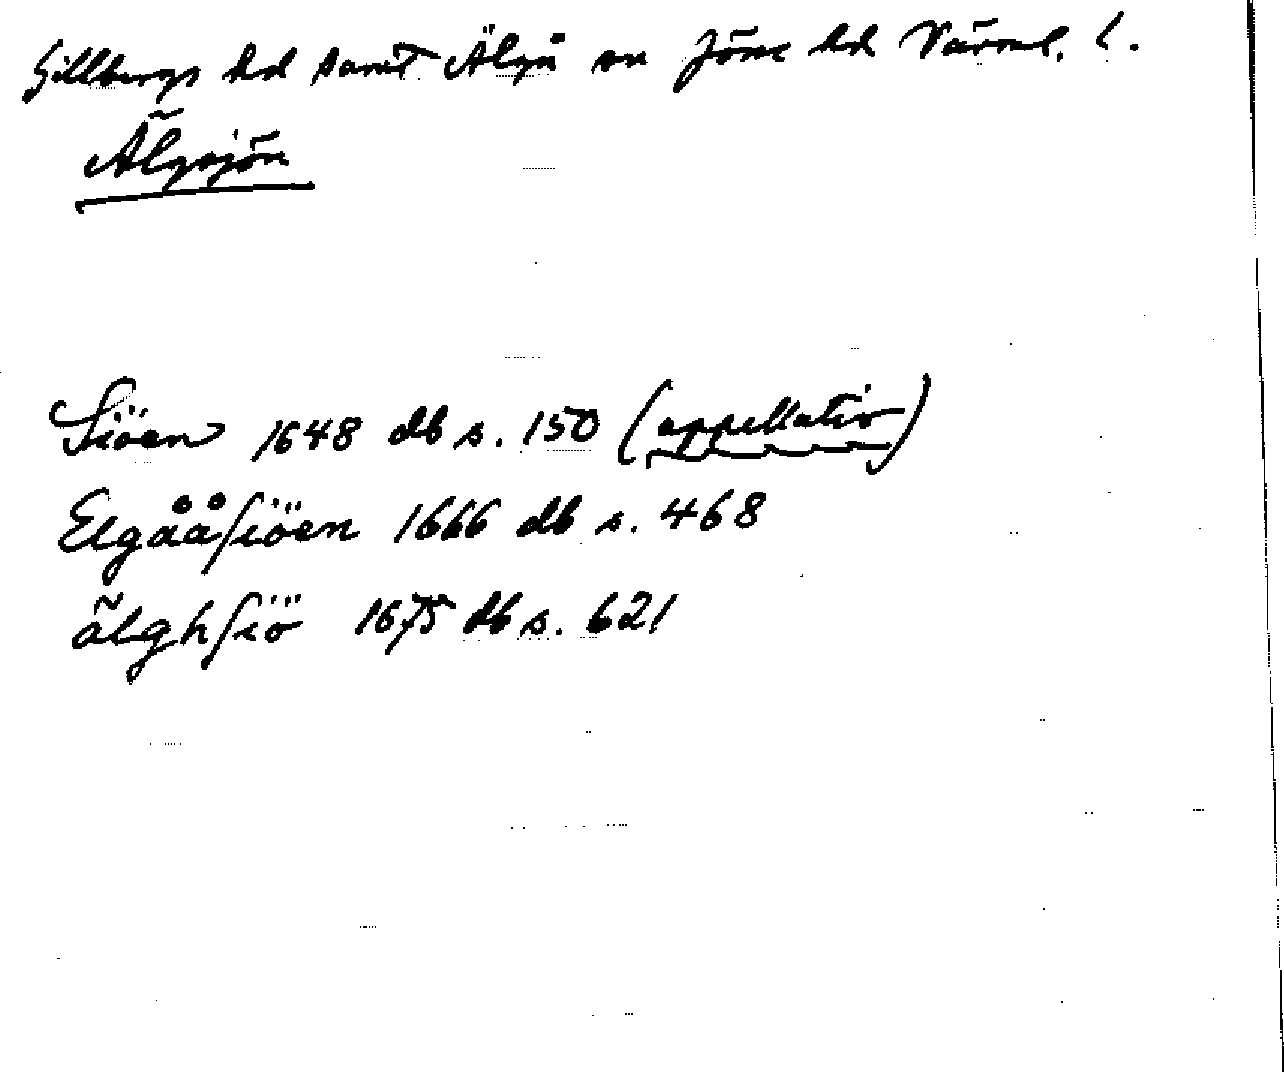 Gillbergs hd samt Älgå sn Jösse hd Värml. l.
Älgsjön
Siöen 1648 db s. 150 (appellativ)
Elgååsiöen 1666 db s. 468
älghsiö 1675 db s. 621